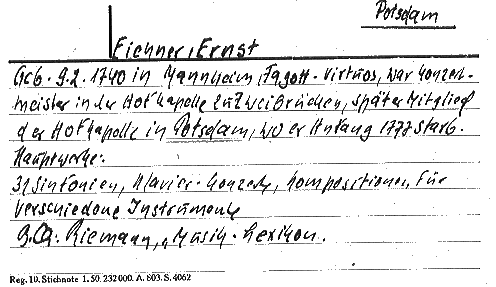 Potsdam
Eichner, Ernst
Geb. 9.2. 1740 in Mannheim, Fagott-Virtuos, war Konzert-
meister in der Hofkapelle zu Zweibrücken, später Mitglied
der Hofkapelle in Potsdam, wo er Anfang 1777 starb.
Hauptwerke:
31 Sinfonien, Klavier-Konzerte, Kompositionen für
verschiedene Instrumente
Riemann, "Musik-Lexikon.
Reg. 10. Stichnote 1. 50. 232000. A. 803. S. 4062